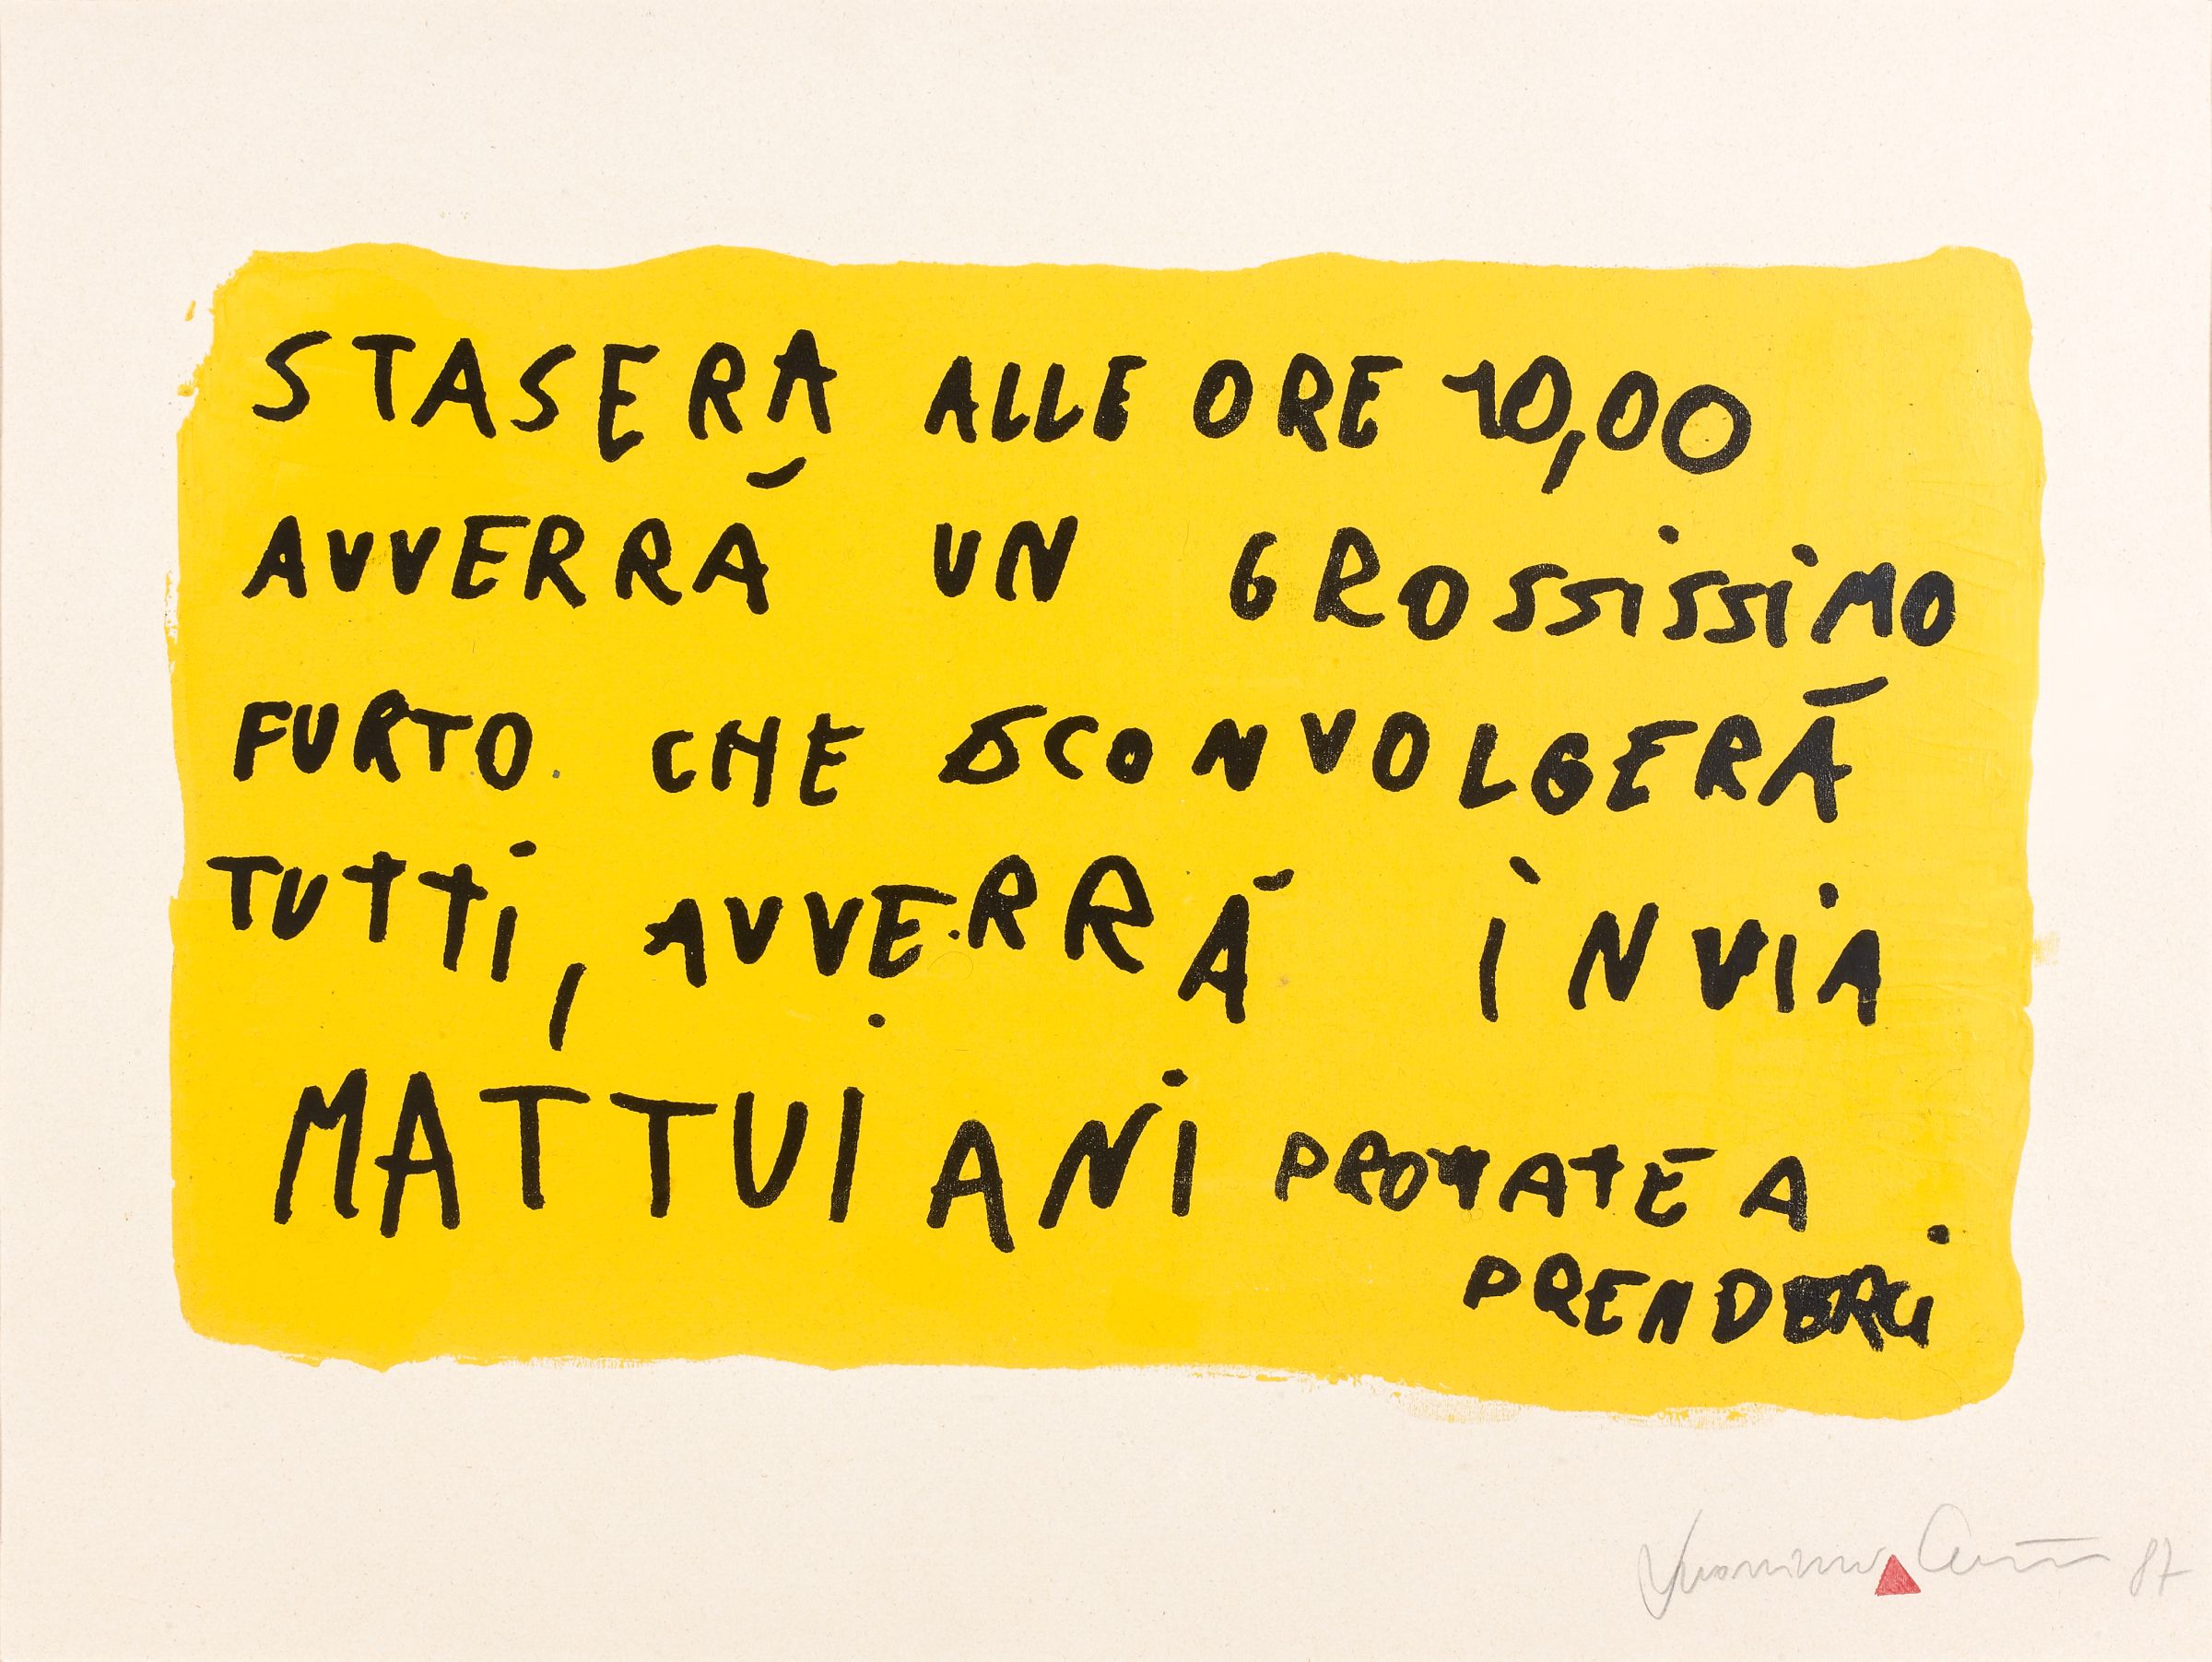 STASERA ALLE ORE 10,00
AVVERRÁ UN GROSSISSIMO
FURTO. CHE SCONVOLGERÁ
TUTTI, AVVERRÁ IN VIA
MATTUIANI PROVATE A
PRENDERCI
87